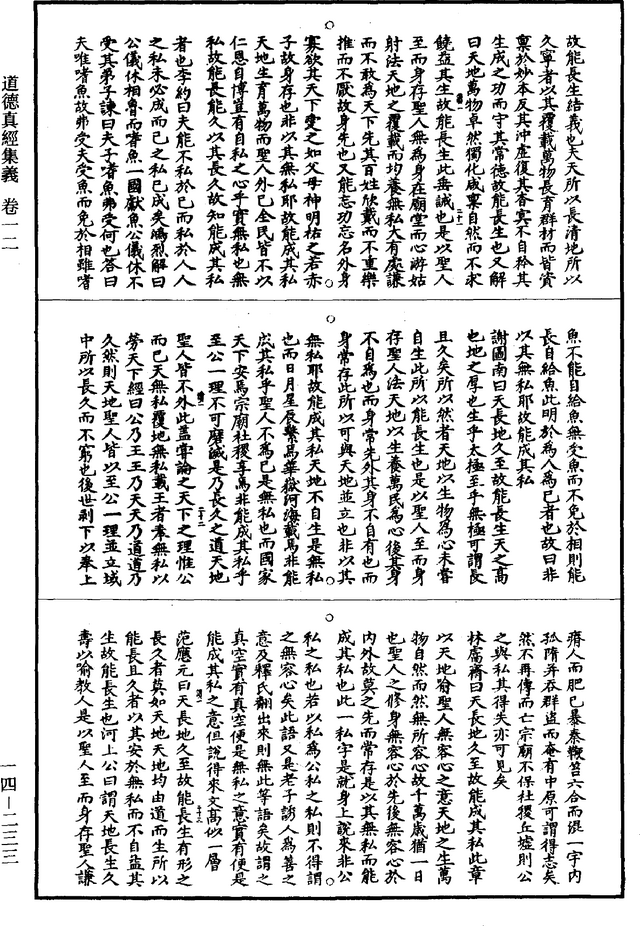 道德真經集義 卷一二
一四－二三三
故能長生結義也夫天所以長清地所以
久寧者以其覆載萬物長育群材而皆資
禀於妙本反其沖虛復其杳冥不自矜其
生成之功而守其常德故能長生也又解
曰天地萬物卓然獨化咸稟自然而不求
饒益其生故能長生此垂誡也是以聖人
至而身存聖人無為身在廟堂而心游姑
射法天地之覆載而均養無私大有處謙
而不敢為天下先其百姓欣戴而不重樂
推而不厭故身先也又能忘功忘名外身
寡欲其天下愛之如父母神明祐之若赤
子故身存也非以其無私耶故能成其私
天地生育萬物而聖人外己全民皆不以
仁恩自博豈有自私之心乎實無私也無
私故能長能久以其長久故知能成其私
者也李約曰夫能不私於己而私於人人
之私未必成而己之私已成矣鴻烈解曰
公儀休相魯而嗜魚一國獻魚公儀休不
受其弟子諫曰夫子嗜魚弗受何也答曰
夫唯嗜魚故弗受夫受魚而免於相雖嗜
魚不能自給魚無受魚而不免於相則能
長自給魚此明於為人為己者也故曰非
以其無私耶故能成其私
謝圖南曰天長地久至故能長生天之高
也地之厚也生乎太極至乎無極可謂長
且久矣所以然者天地以生物為心未嘗
自生此所以能長生也是以聖人至而身
存聖人法天地以生養萬民為心後其身
不自為也而身常先外其身不自有也而
身常存此所以可與天地並立也非以其
無私耶故能成其私天地不自生是無私
也而日月星辰繫焉華嶽河海載焉非能
成其私乎聖人不為己是無私也而國家
天下安焉宗廟社稷享焉非能成其私乎
至公一理不可磨滅是乃長久之道天地
聖人皆不外此蓋嘗論之天下之理惟公
而已天無私覆地無私載王者奉無私以
勞天下經曰公乃王王乃天天乃道道乃
久然則天地聖人皆以至公一理並立域
中所以長久而不窮也後世剥下以奉上
瘠人而肥己暴秦鞭笞六合而混一宇內
孤隋并吞群盜而奄有中原可謂得志矣
然不再傳而亡宗廟不保社稷丘墟則公
之與私其得失亦可見矣
林鬳齋曰天長地久至故能成其私此章
以天地喻聖人無容心之意天地之生萬
物自然而然無所容心故千萬歲猶一日
也聖人之修身無容心於先後無容心於
內外故莫之先而常存是以其無私而能
成其私也此一私字是就身上說來非公
私之私也若以私為公私之私則不得謂
之無容心矣此語又是老子誘人為善之
意及釋氏翻出來則無此等語矣故謂之
真空實有真空便是無私之意實有便是
能成其私之意但說得來文高似一層
范應元曰天長地久至故能長生有形之
長久者莫如天地天地均由道而生所以
能長且久者以其安於無私而不自益其
生故能長生也河上公曰謂天地長生久
壽以喻教人是以聖人至而身存聖人謙